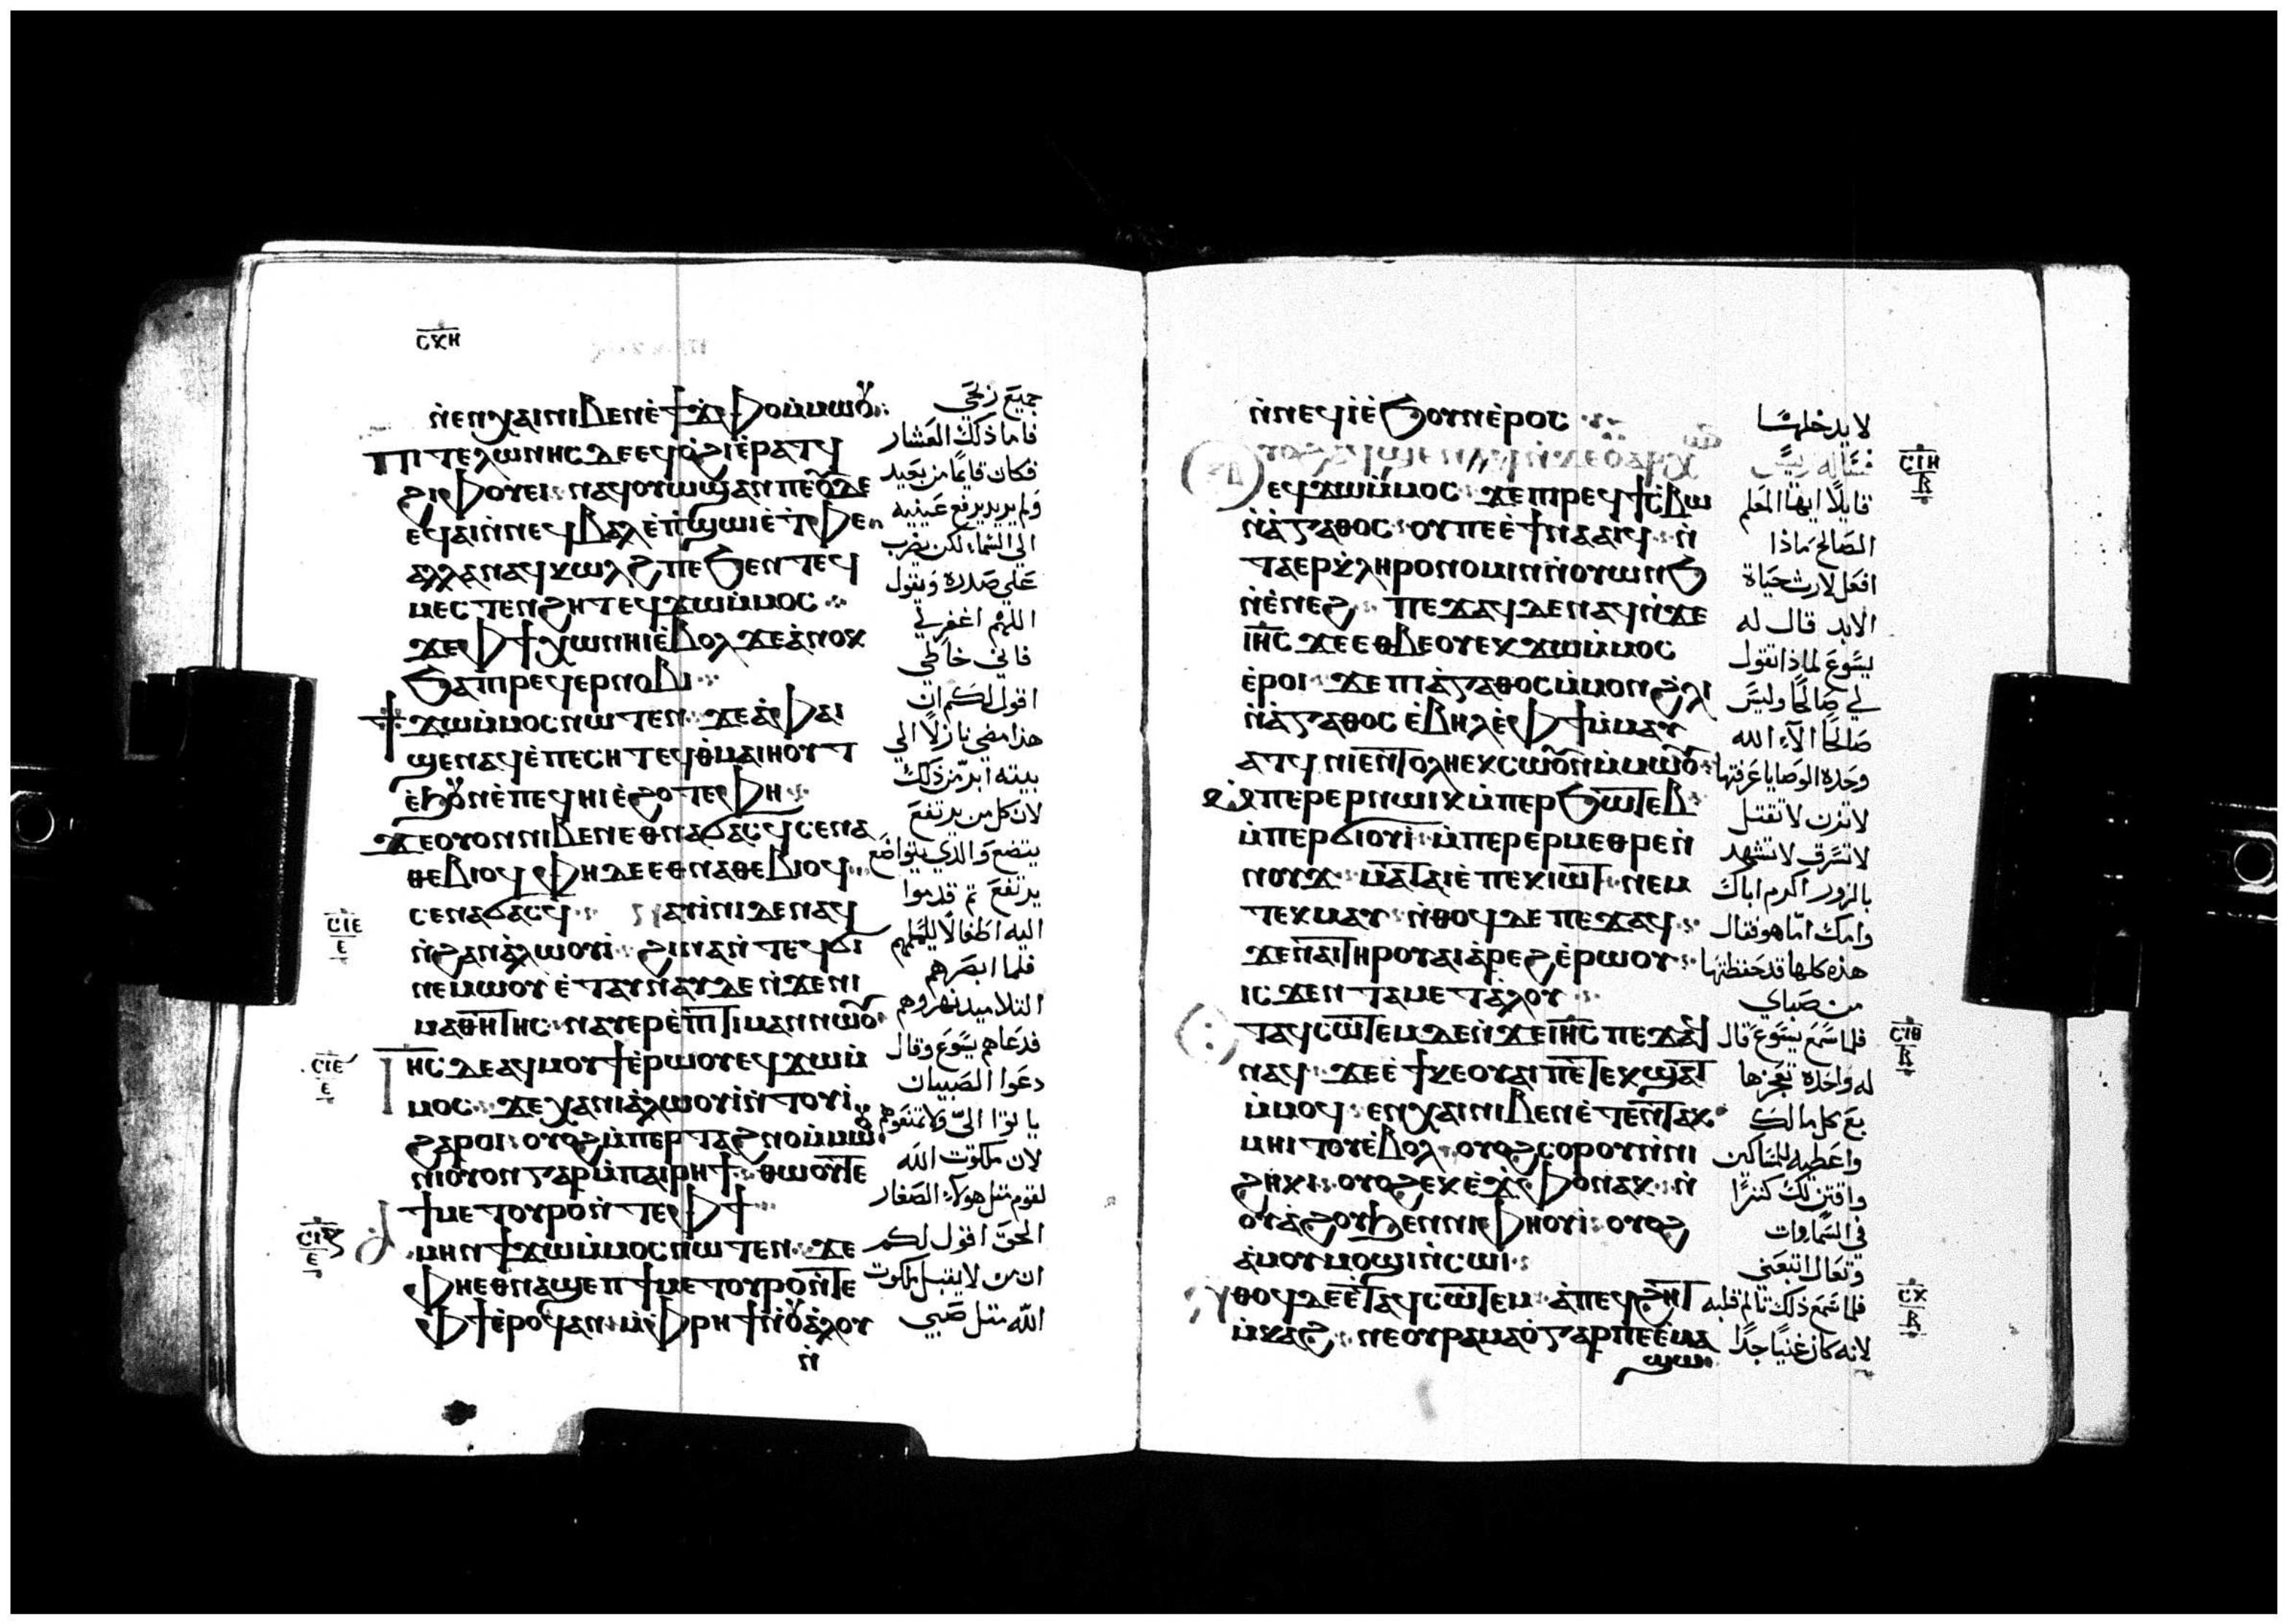 ⲥⲕⲏ
ⲛ̀ⲉⲛⲭⲁⲓⲛⲓⲃⲉⲛⲉ̀ϯϫ̀ⲫⲟⲙ̀ⲙⲱⲟⲩ
جميع زلحي
ⲡⲓⲧⲉⲗⲱⲛⲏⲥⲇⲉⲉϥⲟ̀ϩⲓⲉ̀ⲣⲁⲧϥ
فاما ذلك العشار
ϩⲓⲫⲟⲩⲉⲓ ⲛⲁϥⲟⲩⲱϣⲁⲛⲡⲉⲟⲩⲇⲉ
فكان قايمًا من بعيد
ⲉϥⲁⲓⲛ̀ⲛⲉϥⲃⲁⲗⲉ̀ⲡ̀ϣⲱⲓⲉ̀ⲧ̀ⲫⲉ
ولم يريد يرفع عينيه
ⲁⲗⲗⲁⲛⲁϥⲕⲱⲗϩⲡⲉϧⲉⲛⲧⲉϥ
الى السما، لكن يضرب
ⲙⲉⲥⲧⲉⲛϩⲏⲧⲉϥϫⲱⲙ̀ⲙⲟⲥ
على صدره ويقول
ϫⲉⲫϯⲭⲱⲛⲏⲓⲉ̀ⲃⲟⲗϫⲉⲁ̀ⲛⲟⲕ
اللهم اغفر لي
ϧⲁⲡⲓⲣⲉϥⲉⲣⲛⲟⲃⲓ
فاني خاطي
ϯϫⲱⲙ̀ⲙⲟⲥⲛⲱⲧⲉⲛ ϫⲉⲁ̀ⲫⲁⲓ
اقول لكم ان
ϣⲉⲛⲁϥⲉ̀ⲡⲉⲥⲏⲧⲉϥⲑ̀ⲙⲁⲓⲏⲟⲩⲧ
هذا مضي نازلًا الي
ⲉ̀ϩⲟⲩⲛⲉ̀ⲡⲉϥⲏⲓⲉ̀ϩⲟⲧⲉⲫⲏ
بيته ابر من ذلك
ϫⲉⲟⲩⲟⲛⲛⲓⲃⲉⲛⲉⲑⲛⲁϭⲁⲥϥⲥⲉⲛⲁ
لان كل من يرتفع
ⲑⲉⲃⲓⲟϥ ⲫⲏⲇⲉⲉⲑⲛⲁⲑⲉⲃⲓⲟϥ
يتضع والذي يتواضع
ⲥⲉⲛⲁϭⲁⲥϥ ⲁⲩⲓ̀ⲛⲓⲇⲉⲛⲁϥ
يرتفع ثم قدموا
ⲥⲓⲉ
ⲉ
ⲛ̀ϩⲁⲛⲁ̀ⲗⲱⲟⲩⲓ̀ ϩⲓⲛⲁⲛ̀ⲧⲉϥϭⲓ
اليه اطفالًا ليلمسهم
ⲛⲉⲙⲱⲟⲩⲉ̀ⲧⲁⲩⲛⲁⲩⲇⲉⲛ̀ϫⲉⲛⲓ
فلما ابصرهم
ⲙⲁⲑⲏⲧⲏⲥ ⲛⲁⲩⲉⲣⲉ̀ⲡⲓⲧⲓⲙⲁⲛⲛⲱⲟⲩ
التلاميد نهروهم
ⲓⲏⲥⲇⲉⲁϥⲙⲟⲩϯⲉ̀ⲣⲱⲟⲩⲉϥϫⲱⲙ̀
فدعاهم يسوع وقال
ⲥⲓⲉ
ⲉ
ⲙⲟⲥ ϫⲉⲭⲁⲛⲓⲁ̀ⲗⲱⲟⲩⲓ̀ⲛ̀ⲧⲟⲩⲓ̀
دعوا الصبيان
ϩⲁⲣⲟⲓ ⲟⲩⲟϩⲙ̀ⲡⲉⲣⲧⲁϩⲛⲟⲙ̀ⲙⲱⲟⲩ
ياتوا اليّ ولا تمنعوهم
ⲛⲓⲟⲩⲟⲛⲅⲁⲣⲙ̀ⲡⲁⲓⲣⲏϯ ⲑⲱⲟⲩⲧⲉ
لان ملكوت الله
ϯⲙⲉⲧⲟⲩⲣⲟⲛ̀ⲧⲉⲫϯ
لقوم مثل هولاء الصغار
ⲁⲙⲏⲛϯϫⲱⲙ̀ⲙⲟⲥⲛⲱⲧⲉⲛ ϫⲉ
الحق اقول لكم
ⲫⲏⲉⲑⲛⲁϣⲉⲡϯⲙⲉⲧⲟⲩⲣⲟⲛ̀ⲧⲉ
ان من لا يقبل ملكوت
ⲫϯⲉ̀ⲣⲟϥⲁⲛ ⲙ̀ⲫⲣⲏϯⲛ̀ⲟⲩⲁ̀ⲗⲟⲩ
الله مثل صبي
ⲛ̀
ⲛ̀ⲛⲉϥⲓ̀ⲉ̀ϧⲟⲩⲛⲉ̀ⲣⲟⲥ
لا يدخلها
ⲥⲓⲏ
ⲃ
ⲉϥϫⲱⲙ̀ⲙⲟⲥ ϫⲉⲡⲓⲣⲉϥϯⲥ̀ⲃⲱ
قايلًا ايها المعلم
ⲛ̀ⲁ̀ⲅⲁⲑⲟⲥ ⲟⲩⲡⲉⲉ̀ϯⲛⲁⲁⲓϥ ⲛ̀
الصالح ماذا
ⲧⲁⲉⲣⲕ̀ⲗⲏⲣⲟⲛⲟⲙⲓⲛⲛ̀ⲟⲩⲱⲛϧ
افعل لارث حياة
ⲛ̀ⲉ̀ⲛⲉϩ ⲡⲉϫⲁϥⲇⲉⲛⲁϥⲛ̀ϫⲉ
الابد قال له
ⲓⲏⲥ ϫⲉⲉⲑⲃⲉⲟⲩⲉⲕϫⲱⲙ̀ⲙⲟⲥ
يسوع لماذا تقول
ⲉ̀ⲣⲟⲓ ϫⲉⲡⲓⲁ̀ⲅⲁⲑⲟⲥⲙ̀ⲙⲟⲛϩ̀ⲗⲓ
لي صالحًا وليس
ⲛ̀ⲁ̀ⲅⲁⲑⲟⲥ ⲉ̀ⲃⲏⲗⲉ̀ⲫϯⲙ̀ⲙⲁⲩ
صالحًا الا الله
ⲁⲧϥ ⲛⲓⲉⲛⲧⲟⲗⲏⲉⲕⲥⲱⲟⲩⲛⲙ̀ⲙⲱⲟⲩ
وحده الوصايا عرفتها
ⲙ̀ⲡⲉⲣⲉⲣⲛⲱⲓⲕ ⲙ̀ⲡⲉⲣϧⲱⲧⲉⲃ
لا تزن لا تقتل
ⲙ̀ⲡⲉⲣϭⲓⲟⲩⲓ̀ ⲙ̀ⲡⲉⲣⲉⲣⲙⲉⲑⲣⲉⲛ̀
لا تسرق لا تشهد
ⲛⲟⲩϫ ⲙⲁⲧⲁⲓⲉ̀ⲡⲉⲕⲓⲱⲧ ⲛⲉⲙ
بالزور اكرم اباك
ⲧⲉⲕⲙⲁⲩ ⲛ̀ⲑⲟϥⲇⲉⲡⲉϫⲁϥ
وامك امّا هو فقال
ϫⲉⲛⲁⲓⲧⲏⲣⲟⲩⲁⲓⲁ̀ⲣⲉϩⲉ̀ⲣⲱⲟⲩ
هذه كلها قد حفظتها
ⲓⲥϫⲉⲛⲧⲁⲙⲉⲧⲁ̀ⲗⲟⲩ
من صباي
ⲧⲁϥⲥⲱⲧⲉⲙⲇⲉⲛ̀ϫⲉⲓⲏⲥ ⲡⲉϫⲁϥ
فلما سمع يسوع قال
ⲥⲓⲑ
ⲃ
ⲛⲁϥ ϫⲉⲉ̀ϯⲕⲉⲟⲩⲁⲓⲡⲉⲧⲉⲕϣⲁⲧ
له واحده تعجزها
ⲙ̀ⲙⲟϥ ⲉⲛⲭⲁⲓⲛⲓⲃⲉⲛⲉ̀ⲧⲉⲛⲧⲁⲕ
بع كل مالك
ⲙⲏⲓⲧⲟⲩⲉ̀ⲃⲟⲗ ⲟⲩⲟϩⲥⲟⲣⲟⲩⲛ̀ⲛⲓ
واعطيه للمساكين
ϩⲏⲕⲓ ⲟⲩⲟϩⲉⲕⲉ̀ϫ̀ⲫⲟⲛⲁⲕ ⲛ̀
واقتن لك كنزًا
ⲟⲩⲁ̀ϩⲟϧⲉⲛⲛⲓⲫⲏⲟⲩⲓ̀ ⲟⲩⲟϩ
في السماوات
ⲁ̀ⲙⲟⲩⲙⲟϣⲓⲛ̀ⲥⲱⲓ
وتعال اتبعني
ⲛⲑⲟϥⲇⲉⲉ̀ⲧⲁϥⲥⲱⲧⲉⲙ ⲁ̀ⲡⲉϥϩⲏⲧ
فلما سمع ذلك تالم قلبه
ⲥⲕ
ⲃ
ⲙ̀ⲕⲁϩ ⲛⲉⲟⲩⲣⲁⲙⲁⲟ̀ⲅⲁⲣⲡⲉⲉ̀ⲙⲁ
لانه كان غنيًا جدًا
ϣⲱ